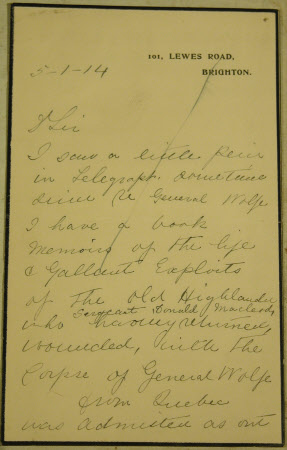 101, LEWES ROAD,
BRIGHTON.
5-1-14
D Sir
I saw a little
in Telegraph. Sometime
since re General Wolfe
I have a book
Memoirs of the life
& Gallant Exploits
of the Old Highlander
Sergeant Donald Macleod,
who having returned,
wounded, with the
Corpse of General Wolfe
from Quebec
was admitted as out